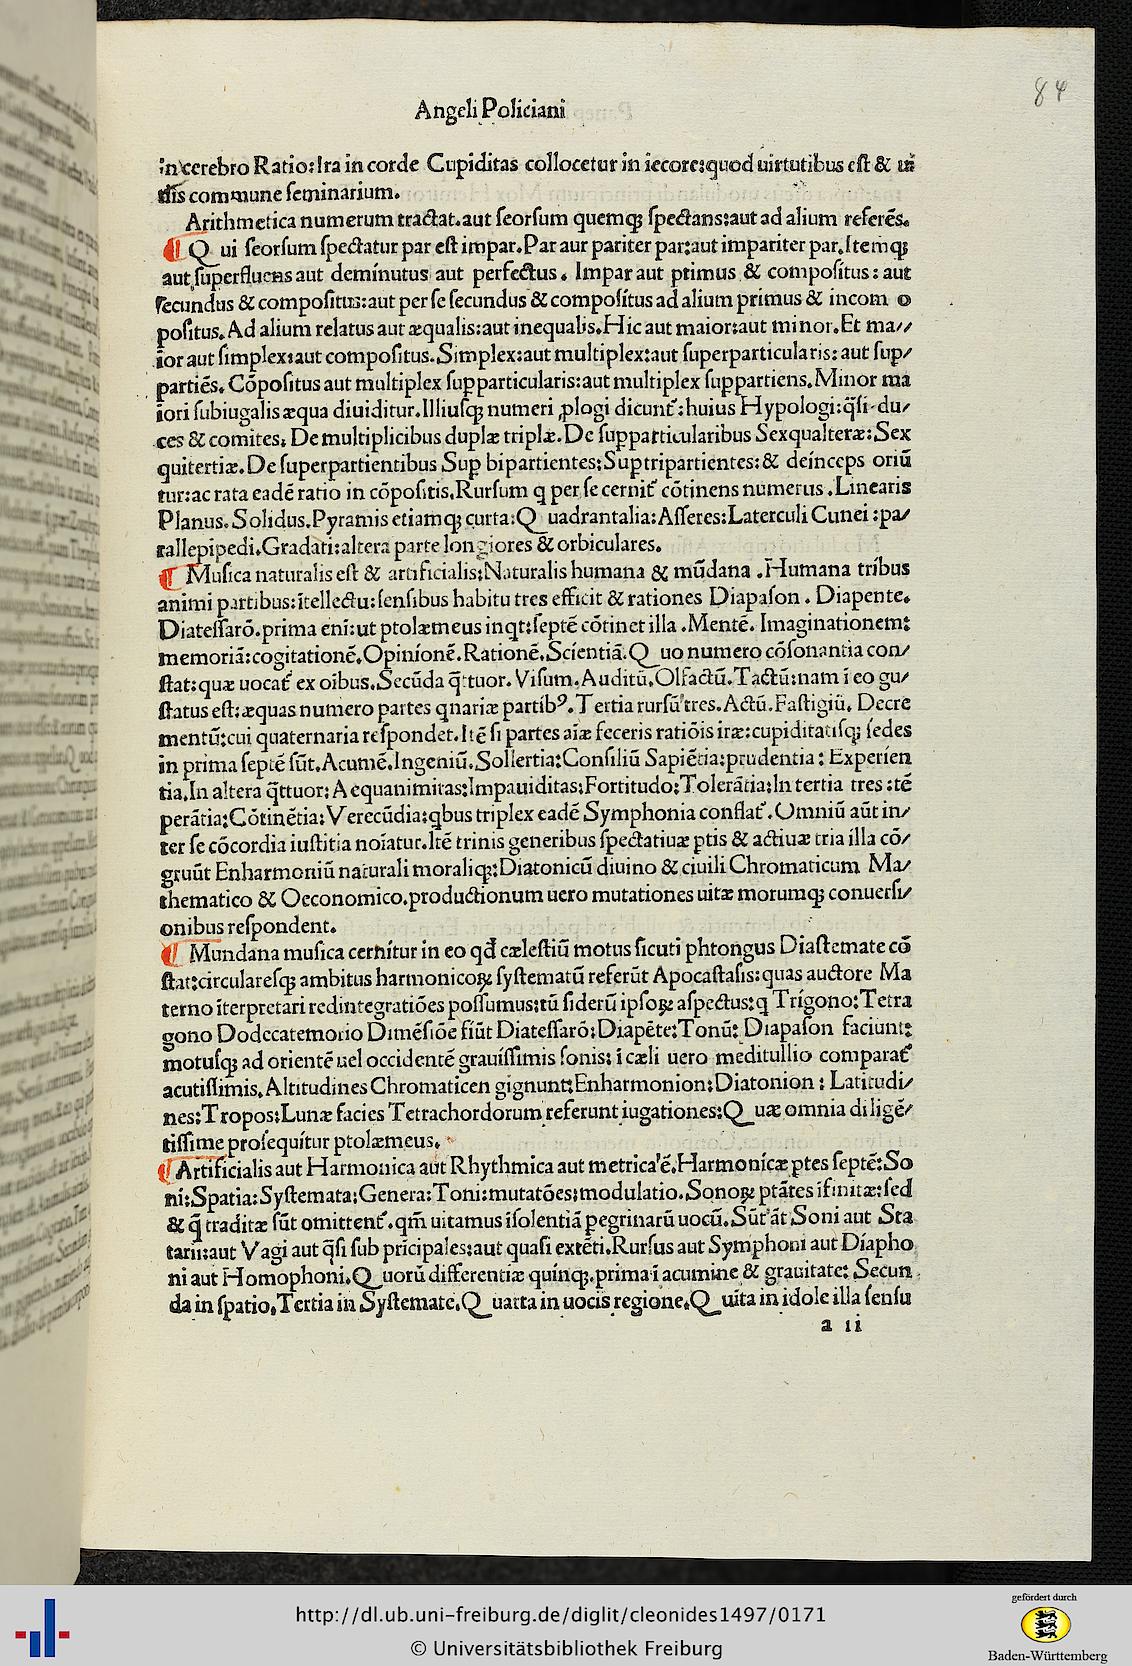 84
Angeli Policiani
in cerebro Ratio:Ira in corde Cupiditas collocetur in iecore:quod uirtutibus est & ui
tiis commune seminarium.
Arithmetica numerum tractat.aut seorsum quemqꝫ spectans:aut ad alium referēs.
¶ Q ui seorsum spectatur par est impar.Par aur pariter par:aut impariter par.Itemqꝫ
aut superfluens aut deminutus aut perfectus. Impar aut ptimus & compositus: aut
secundus & compositus:aut per se secundus & compositus ad alium primus & incom o
positus.Ad alium relatus aut æqualis:aut inequalis.Hic aut maior:aut minor.Et ma//
ior aut simplex:aut compositus.Simplex:aut multiplex:aut superparticularis: aut sup/
partiēs. Cōpositus aut multiplex supparticularis:aut multiplex suppartiens.Minor ma
iori subiugalis æqua diuiditur.Illiusqꝫ numeri ꝓlogi dicunt᷑: huius Hypologi:q̄si du/
ces & comites. De multiplicibus duplæ triplæ.De supparticularibus Sexqualteræ:Sex
quitertiæ.De superpartientibus Sup bipartientes:Suptripartientes:& deinceps oriū
tur:ac rata eadē ratio in cōpositis.Rursum q per se cernit᷑ cōtinens numerus .Linearis
Planus.Solidus.Pyramis etiamqꝫ curta:Q uadrantalia:Asseres:Laterculi Cunei :pa/
rallepipedi.Gradati:altera parte longiores & orbiculares.
¶ Musica naturalis est & artificialis:Naturalis humana & mūdana .Humana tribus
animi partibus:ītellectu:sensibus habitu tres efficit & rationes Diapason . Diapente.
Diatessarō.prima eni:ut ptolæmeus inqt:septē cōtinet illa .Mentē. Imaginationem:
memoriā:cogitationē.Opinionē.Rationē.Scientiā.Q uo numero cōsonantia con/
stat:quæ uocat᷑ ex oibus.Secūda q̄ttuor. Visum.Auditū.Olfactū.Tactū:nam i eo gu/
status est:æquas numero partes qnariæ partibꝰ. Tertia rursū tres.Actū.Fastigiū. Decre
mentū:cui quaternaria respondet.Itē si partes aiæ feceris ratiōis iræ:cupiditatisqꝫ sedes
in prima septē sūt.Acumē.Ingeniū.Sollertia:Consiliū Sapiētia:prudentia: Experien
tia.In altera q̄ttuor: Aequanimitas:Impauiditas:Fortitudo:Tolerātia:In tertia tres :tē
perātia:Cōtinētia:Verecūdia:qbus triplex eadē Symphonia conflat᷑.Omniū aūt in/
ter se cōcordia iustitia noīatur.Itē trinis generibus spectatiuæ ptis & actiuæ tria illa cō/
gruūt Enharmoniū naturali moraliqꝫ:Diatonicū diuino & ciuili Chromaticum Ma/
thematico & Oeconomico.productionum uero mutationes uitæ morumqꝫ conuersi/
onibus respondent.
¶ Mundana musica cernitur in eo qđ cælestiū motus sicuti phtongus Diastemate cō
stat:circularesqꝫ ambitus harmonicoꝝ systematū referūt Apocastasis:quas auctore Ma
terno īterpretari redintegratiōes possumus:tū siderū ipsoꝝ aspectus:q Trigono:Tetra
gono Dodecatemorio Dimēsiōe fiūt Diatessarō:Diapēte:Tonū: Diapason faciunt:
motusqꝫ ad orientē uel occidentē grauissimis sonis: i cæli uero meditullio comparat᷑
acutissimis.Altitudines Chromaticen gignunt:Enharmonion:Diatonion : Latitudi/
nes:Tropos:Lunæ facies Tetrachordorum referunt iugationes:Q uæ omnia diligē/
tissime prosequitur ptolæmeus.
¶ Artificialis aut Harmonica aut Rhythmica aut metrica ē.Harmonicæ ptes septē:So
ni:Spatia:Systemata:Genera:Toni:mutatōes:modulatio.Sonoꝝ ptātes ifinitæ:sed
& q̄ traditæ sūt omittent᷑.qm̄ uitamus īsolentiā pegrinarū uocū.Sūt āt Soni aut Sta
tarii:aut Vagi aut q̄si sub pricipales:aut quasi extēti.Rursus aut Symphoni aut Diapho
ni aut Homophoni.Q uorū differentiæ quinqꝫ.prima i acumine & grauitate: Secun
da in spatio.Tertia in Systemate.Q uarta in uocis regione.Q uita in idole illa sensu
a ii
http://dl.ub.uni-freiburg.de/diglit/cleonides1497/0171
© Universitätsbibliothek Freiburg
gefördert durch
Baden-Württemberg